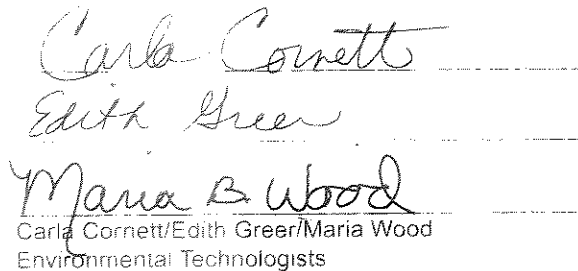 Carla Cornett
Edith Greer
Maria B. Wood
Carla Cornett/Edith Greer/Maria Wood
Environmental Technologists